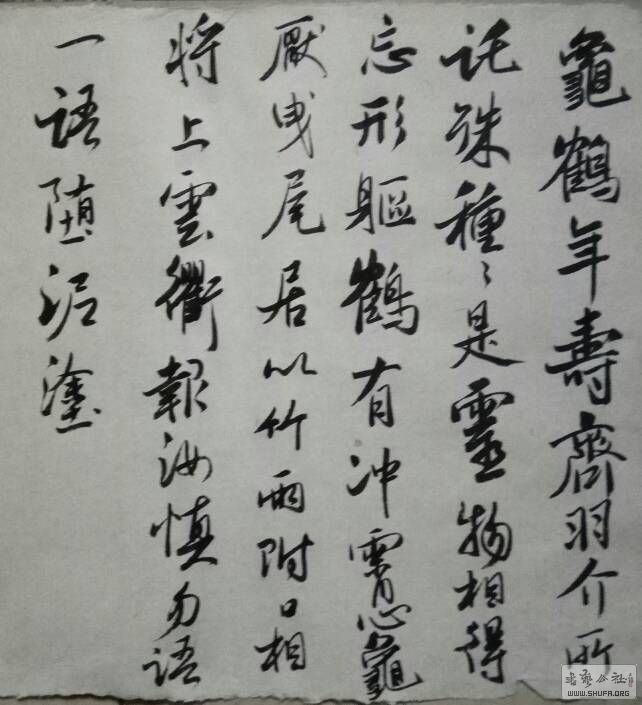 龜鶴年壽齊羽介所
託殊種々是靈物相得
忘形軀鶴有冲霄心龜
厭曳尾居以竹兩附口相
將上雲衢報汝慎勿語
一語墮泥塗
书艺公社
WWW.SHUFA.ORG